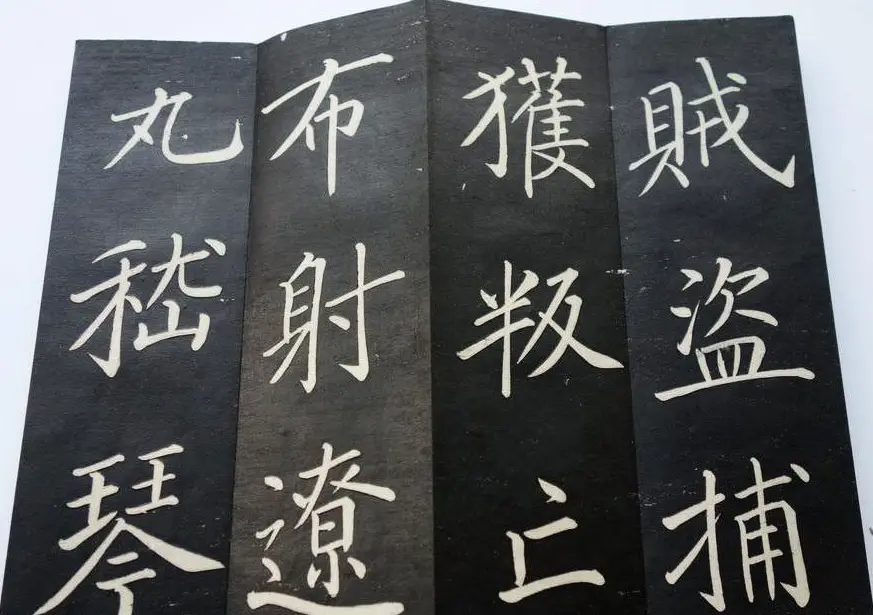 賊盜捕
獲叛亡
布射遼
丸嵇琴